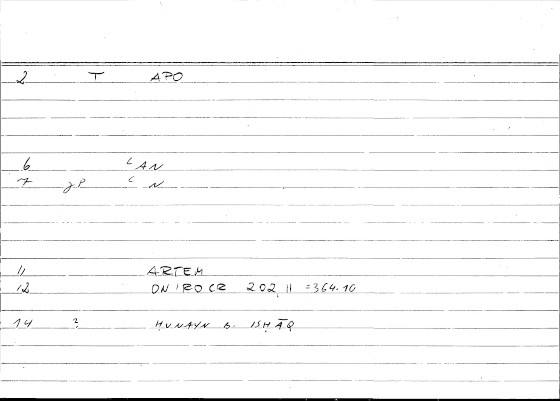 2 T APO
6 ʿAN
7 JP ʿN
11 ARTEM
12 ONIROCR 202,11 =364.10
14 ? ḤUNAYN B. ISḤĀQ